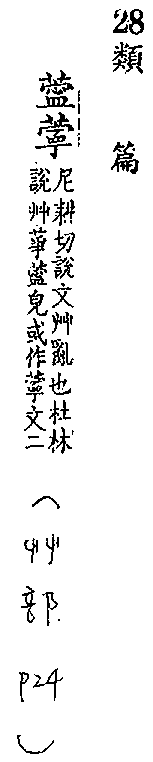 28類 篇
䔭薴
尼耕切說文艸亂也杜林
說艸䔭皃或作薴文二
(艸部 P24)